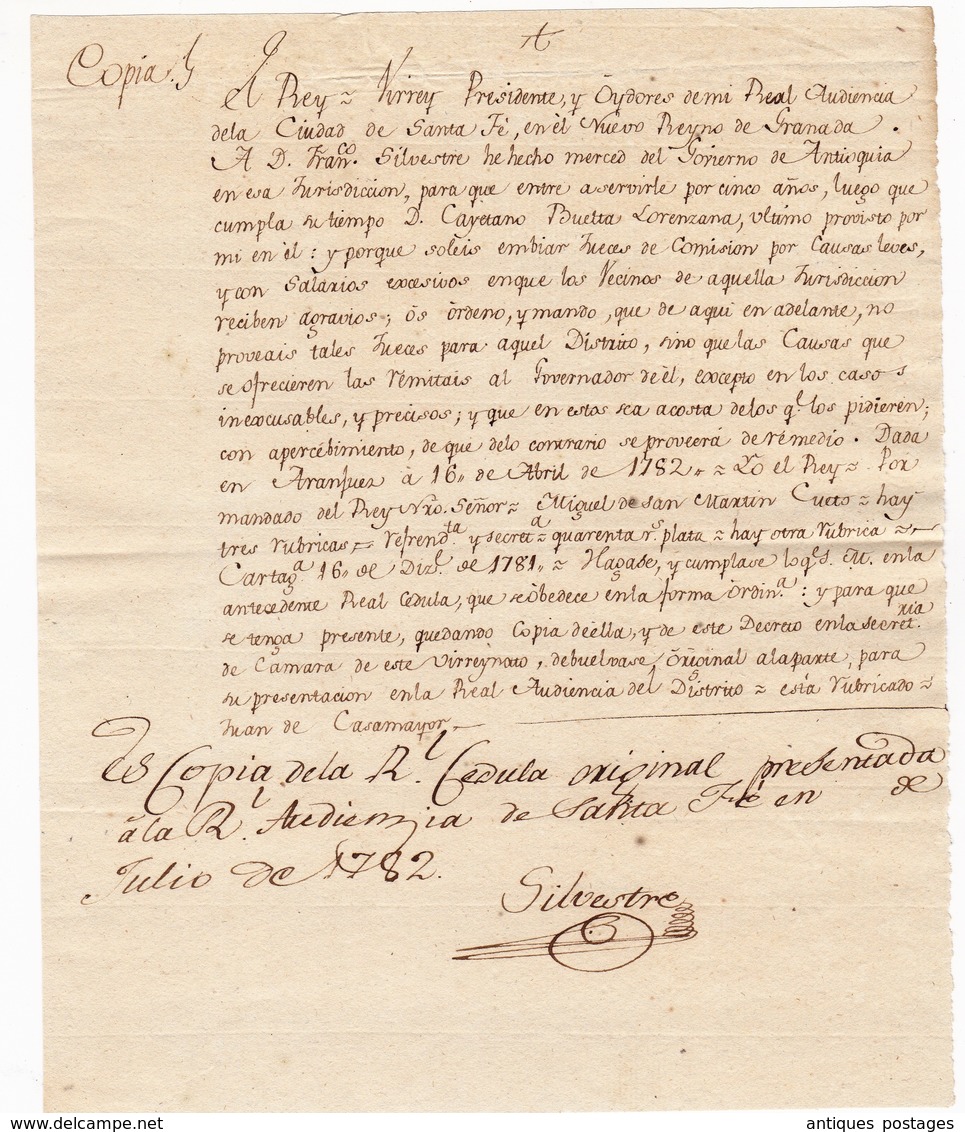 Copia.
El Rey = Virrey Presidente, y Oydores de mi Real Audiencia
dela Ciudad de Santa Fé, en èl Nuevo Reyno de Granada.
A D. Franco. Silvestre he hecho merced del Govierno de Antioquia
en esa Jurisdiccion, para que entre a servirle por cinco años, luego que
cumpla su tiempo D. Cayetano Buelta Lorenzana, vltimo provisto por
mi en èl: y porque soleis embiar Jueces de Comision por Causas leves,
y con Salarios excesivos enque los Vecinos de aquella Jurisdiccion
reciben agravios; ôs òrdeno, y mando, que de aqui en adelante, no
proveais tales Jueces para aquel Distrito, sino que las Causas que
se ofrecieren las remitais al Governador de èl, excepto en los casos
inexcusables, y precisos; y que en estos sea acosta delos ql. los pidieren;
con apercèbimiento, de que delo contrario se proveerá de rèmedio. Dada
en Aranjuez à 16,, de Abril de 1782,, = Yo el Rey = Por
mandado del Rey Nro. Señor = Miguel de San Martin Cueto = hay
tres rubricas = Refrendta. y secreta. = quarenta rs. plata = hay otra rubrica =
Cartaga. 16,, de Dizl. de 1781,, = Hagase, y cumplase loql. S. M. en la
antecedente Real Cedula, que se òbedece en la forma òrdina.: y para que
se tenga presente, quedando Copia de èlla, y de este Decreto en la secretria.
de Camara de este virreynato, debuelvase, òriginal ala parte, para
su presentacion en la Real Audiencia del Distrito = està rubricado =
Juan de Casamayor
Es Copia dela Rl. Cedula original presentada
à la Rl. Audienzia de Santa Fé en de
Julio de 1782.
Silvestre
antiques postages